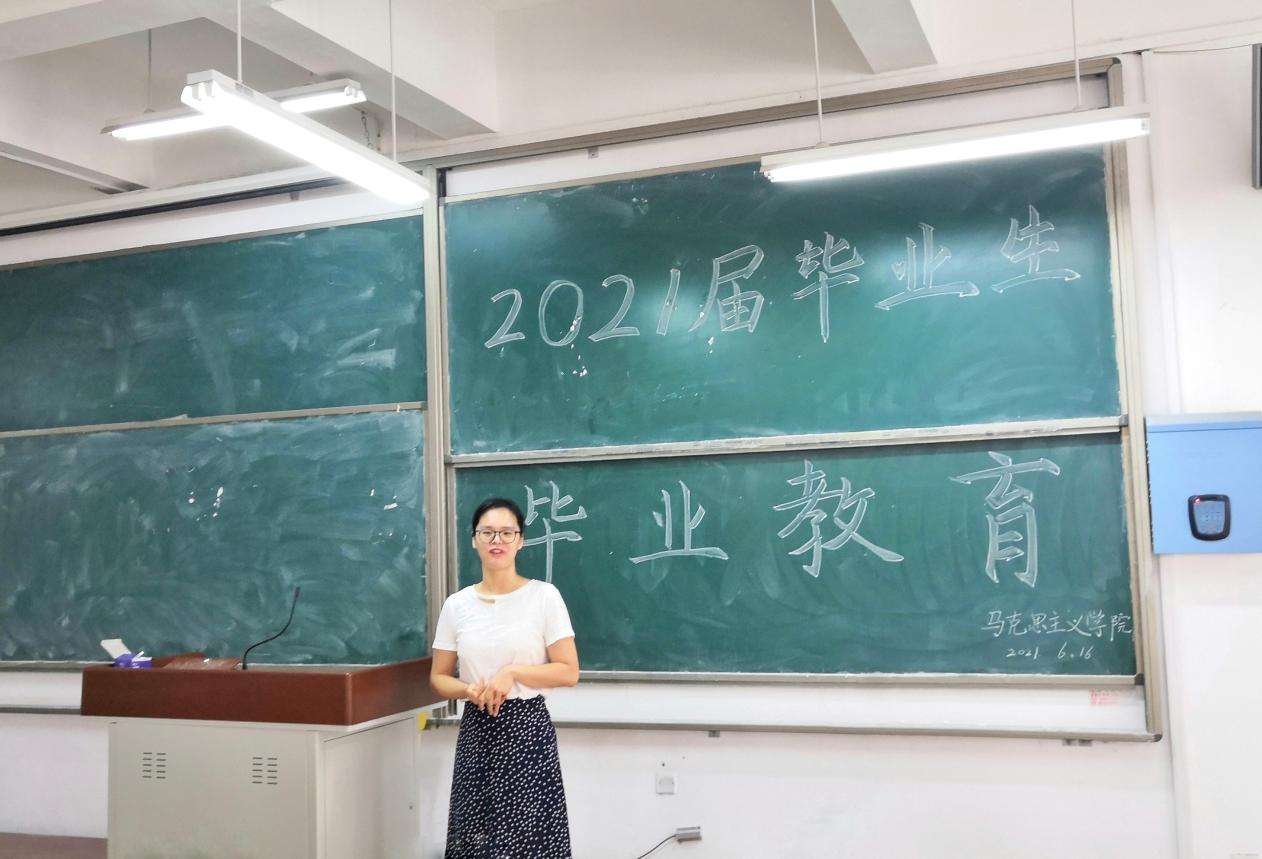 2021届毕业生
毕业教育
马克思主义学院
2021 6.16